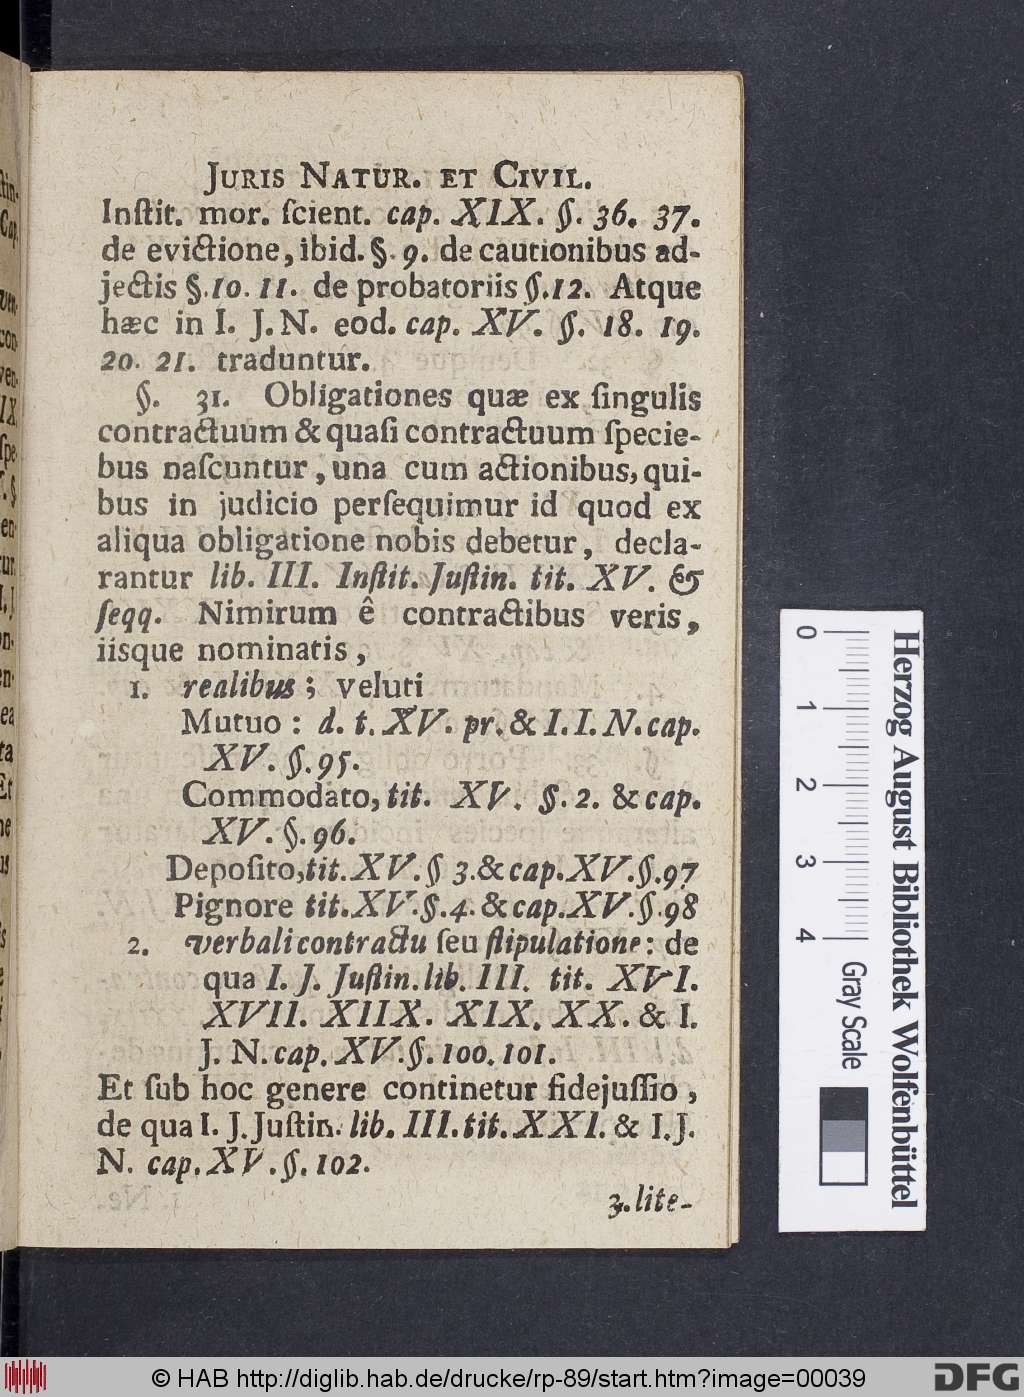 JURIS NATUR. ET CIVIL.
Inſtit. mor. ſcient. cap. XIX. §. 36. 37.
de evictione, ibid. §. 9. de cautionibus ad-
jectis §. 10. 11. de probatoriis §. 12. Atque
hæc in I. J. N. eod. cap. XV. §. 18. 19.
20. 21. traduntur.
§. 31. Obligationes quæ ex ſingulis
contractuum & quaſi contractuum ſpecie-
bus naſcuntur, una cum actionibus, qui-
bus in judicio perſequimur id quod ex
aliqua obligatione nobis debetur, decla-
rantur lib. III. Inſtit. Juſtin. tit. XV. &
ſeqq. Nimirum ê contractibus veris,
iisque nominatis,
1. realibus; veluti
Mutuo: d. t. XV. pr. & I. I. N. cap.
XV. §. 95.
Commodato, tit. XV. §. 2. & cap.
XV. §. 96.
Depoſito, tit. XV. § 3. & cap. XV. §. 97
Pignore tit. XV. §. 4. & cap. XV. §. 98
2. verbali contractu ſeu ſtipulatione: de
qua I. J. Juſtin. lib. III. tit. XVI.
XVII. XIIX. XIX. XX. & I.
J. N. cap. XV. §. 100. 101.
Et ſub hoc genere continetur fidejuſſio,
de qua I. J. Juſtin. lib. III. tit. XXI. & I. J.
N. cap. XV. §. 102.
3. lite-
0 1 2 3 4
Gray Scale
Herzog August Bibliothek Wolfenbüttel
© HAB http://diglib.hab.de/drucke/rp-89/start.htm?image=00039
DFG